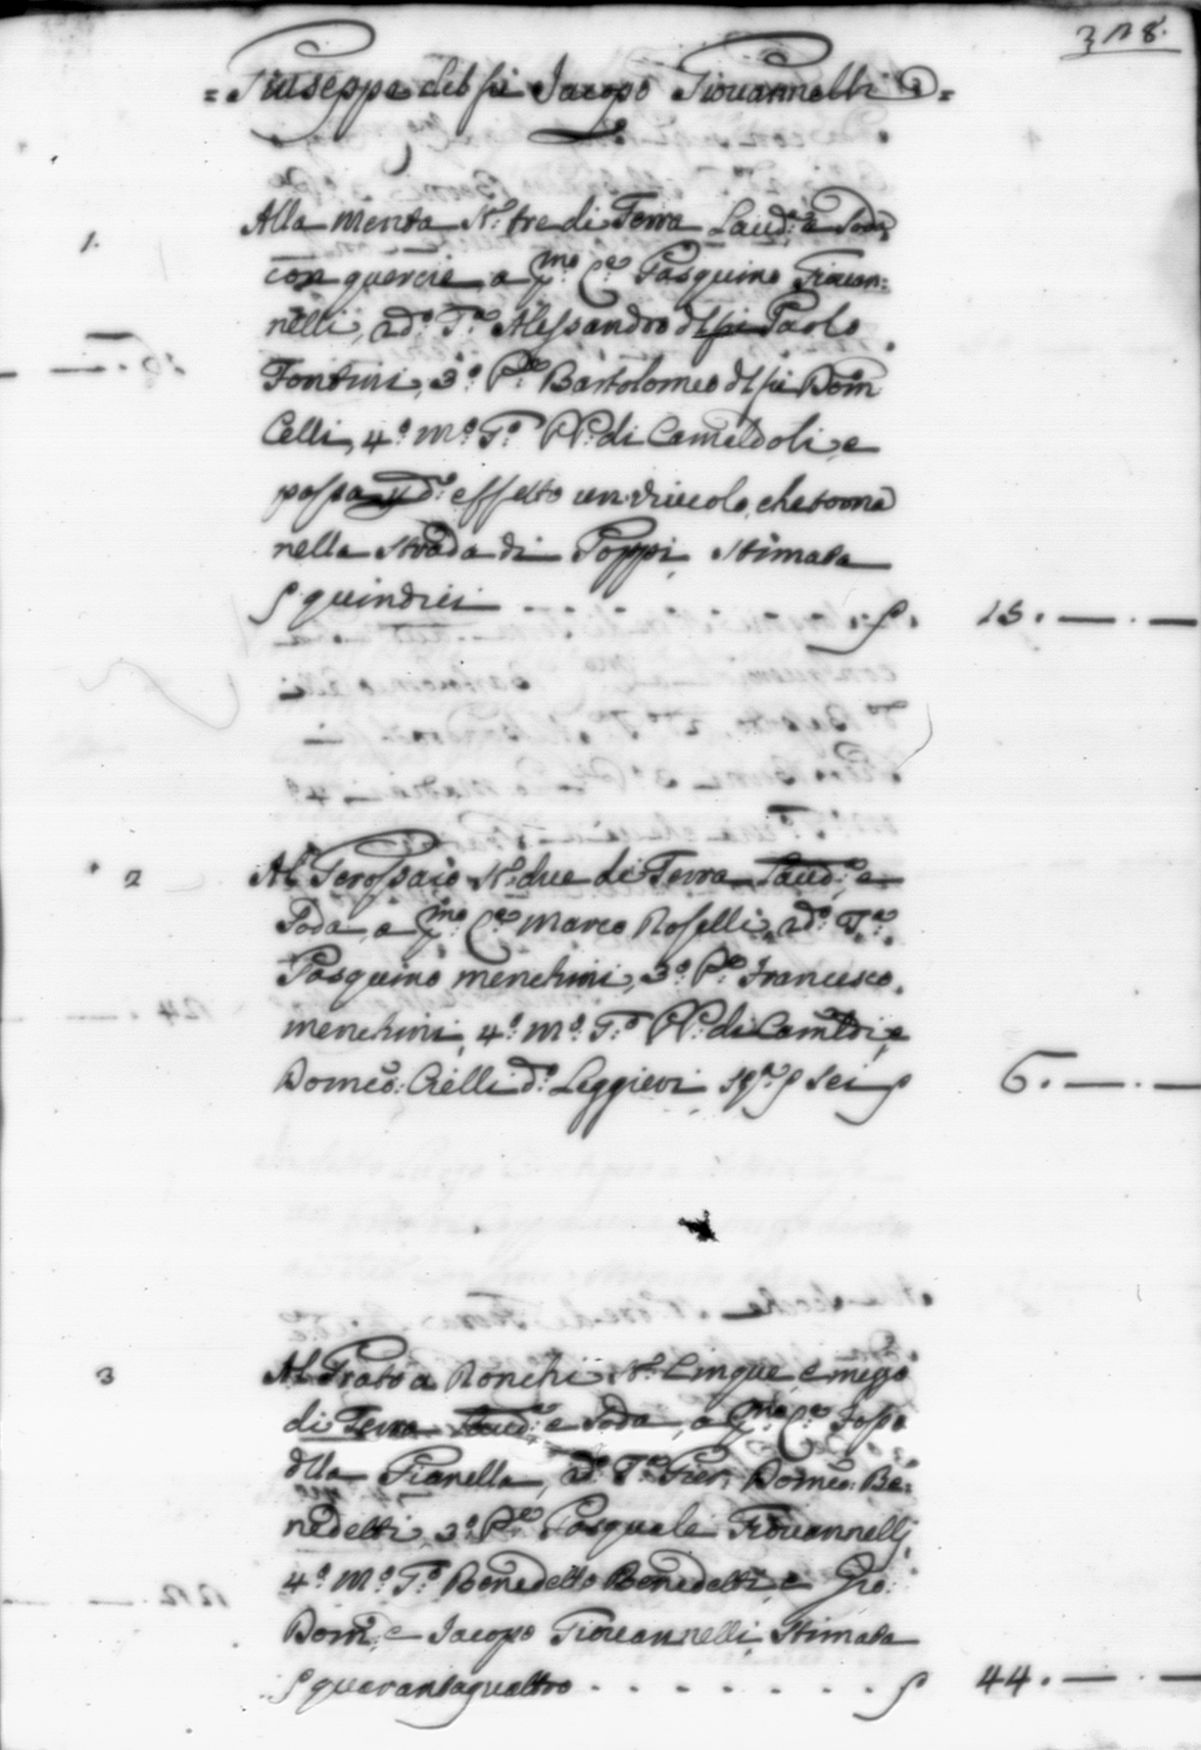 328.
= Giuseppe del fù Jacopo Giouannelli =
1. Alla Menta N.º tre di Terra Laud.ª e Soda
con quercie, a p.mo C.e Pasquino Giouan:
nelli, 2d.º T.ª Alessandro d'l fù Paolo
Fontini, 3.º P.e Bartolomeo d'l fù Dom
Celli, 4.º M.º T.º PP. di Camaldoli, e
passa p d.º effetto un viuolo, che torna
nella Strada di Poppi, Stimata
quindici . . . . . 15. — . —
2 Al N.º due di Terra Laud.ª e
Soda, a p.mo C.e Marco Roselli, 2d.º T.ª
Pasquino Menchini, 3.º P.e Francesco
Menchini, 4.º M.º T.º PP. di Camldi, e
Domeco: Cielli d.º Leggieri St.ª Sei 6. — . —
3 Al Prato a Ronchi N.º Cinque, e mezzo
di Terra Laud.ª e Soda, a p.mo C.e Fosso
d'lla Pianella, 2d.º T.ª Pier. Domeco: Be:
nedetti, 3.º P.e Pasquale Giouannelli,
4.º M.º T.º Benedetto Benedetti, e Gio:
Dom, e Jacopo Giouannelli, Stimata
quarantaquattro . . . . . . . . 44. — . —